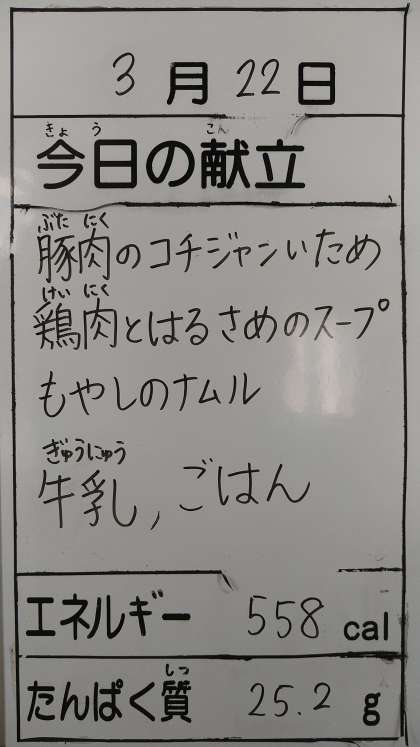 3月22日
きょう こん
今日の献立
ぶた にく
豚肉のコチジャンいため
けい にく
鶏肉とはるさめのスープ
もやしのナムル
ぎゅうにゅう
牛乳, ごはん
エネルギー 558 cal
しつ
たんぱく質 25.2 g